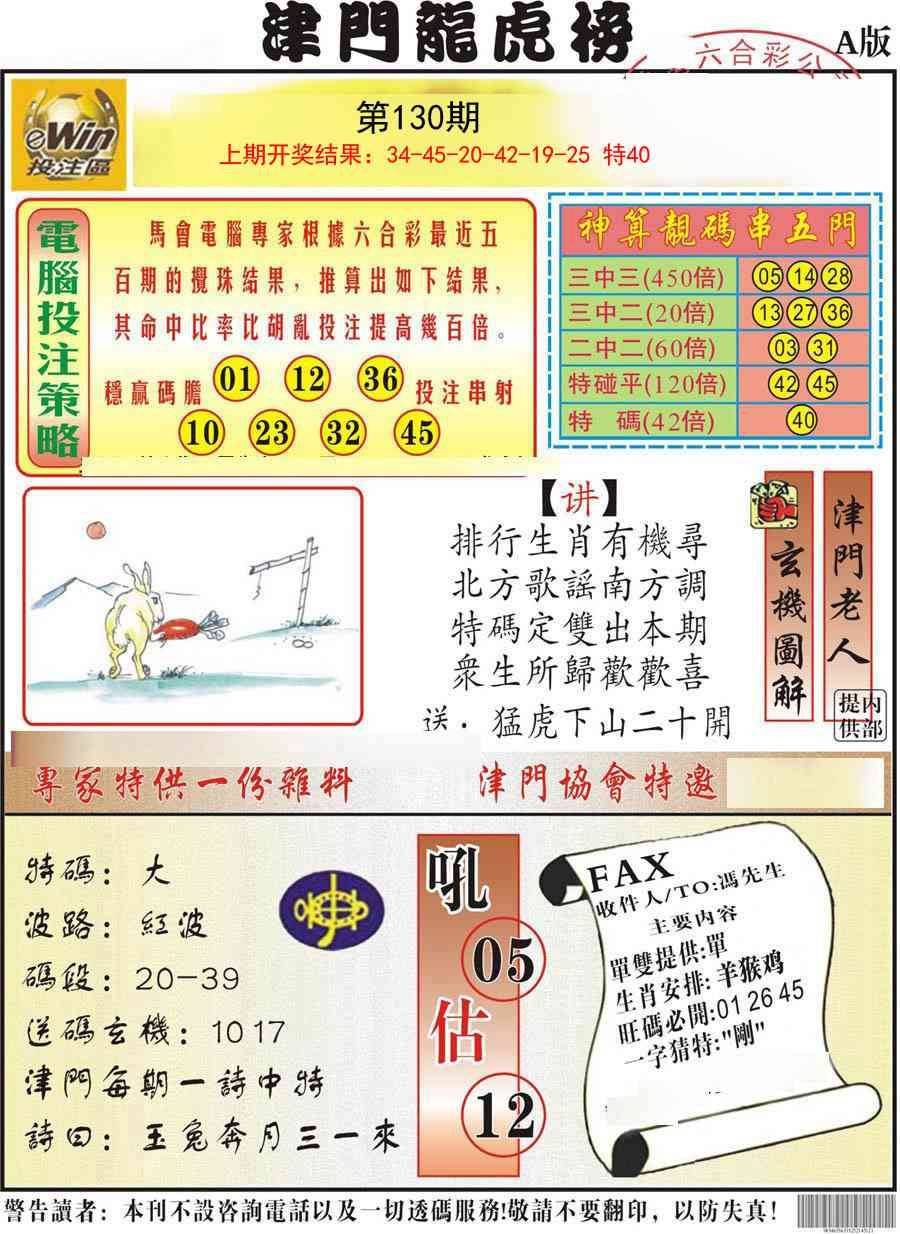 津門龍虎榜
A版
六合彩公
eWin
投注區
第130期
上期开奖结果：34-45-20-42-19-25 特40
電腦投注策略
馬會電腦專家根據六合彩最近五
百期的攪珠結果，推算出如下結果，
其命中比率比胡亂投注提高幾百倍。
穩贏碼膽 01 12 36 投注串射
10 23 32 45
神算靚碼串五門
三中三(450倍) 05 14 28
三中二(20倍) 13 27 36
二中二(60倍) 03 31
特碰平(120倍) 42 45
特 碼(42倍) 40
【讲】
排行生肖有機尋
北方歌謠南方調
特碼定雙出本期
衆生所歸歡歡喜
送．猛虎下山二十開
玄機圖解
津門老人
内部提供
專家特供一份雜料
津門協會特邀
特碼：大
波路：紅波
碼段：20-39
送碼玄機：10 17
津門每期一詩中特
詩曰：玉兔奔月三一來
吼
05
估
12
FAX
收件人/TO:馮先生
主要内容
單雙提供:單
生肖安排:羊猴鸡
旺碼必開:01 26 45
一字猜特:"剛"
警告讀者：本刊不設咨詢電話以及一切透碼服務!敬請不要翻印，以防失真!